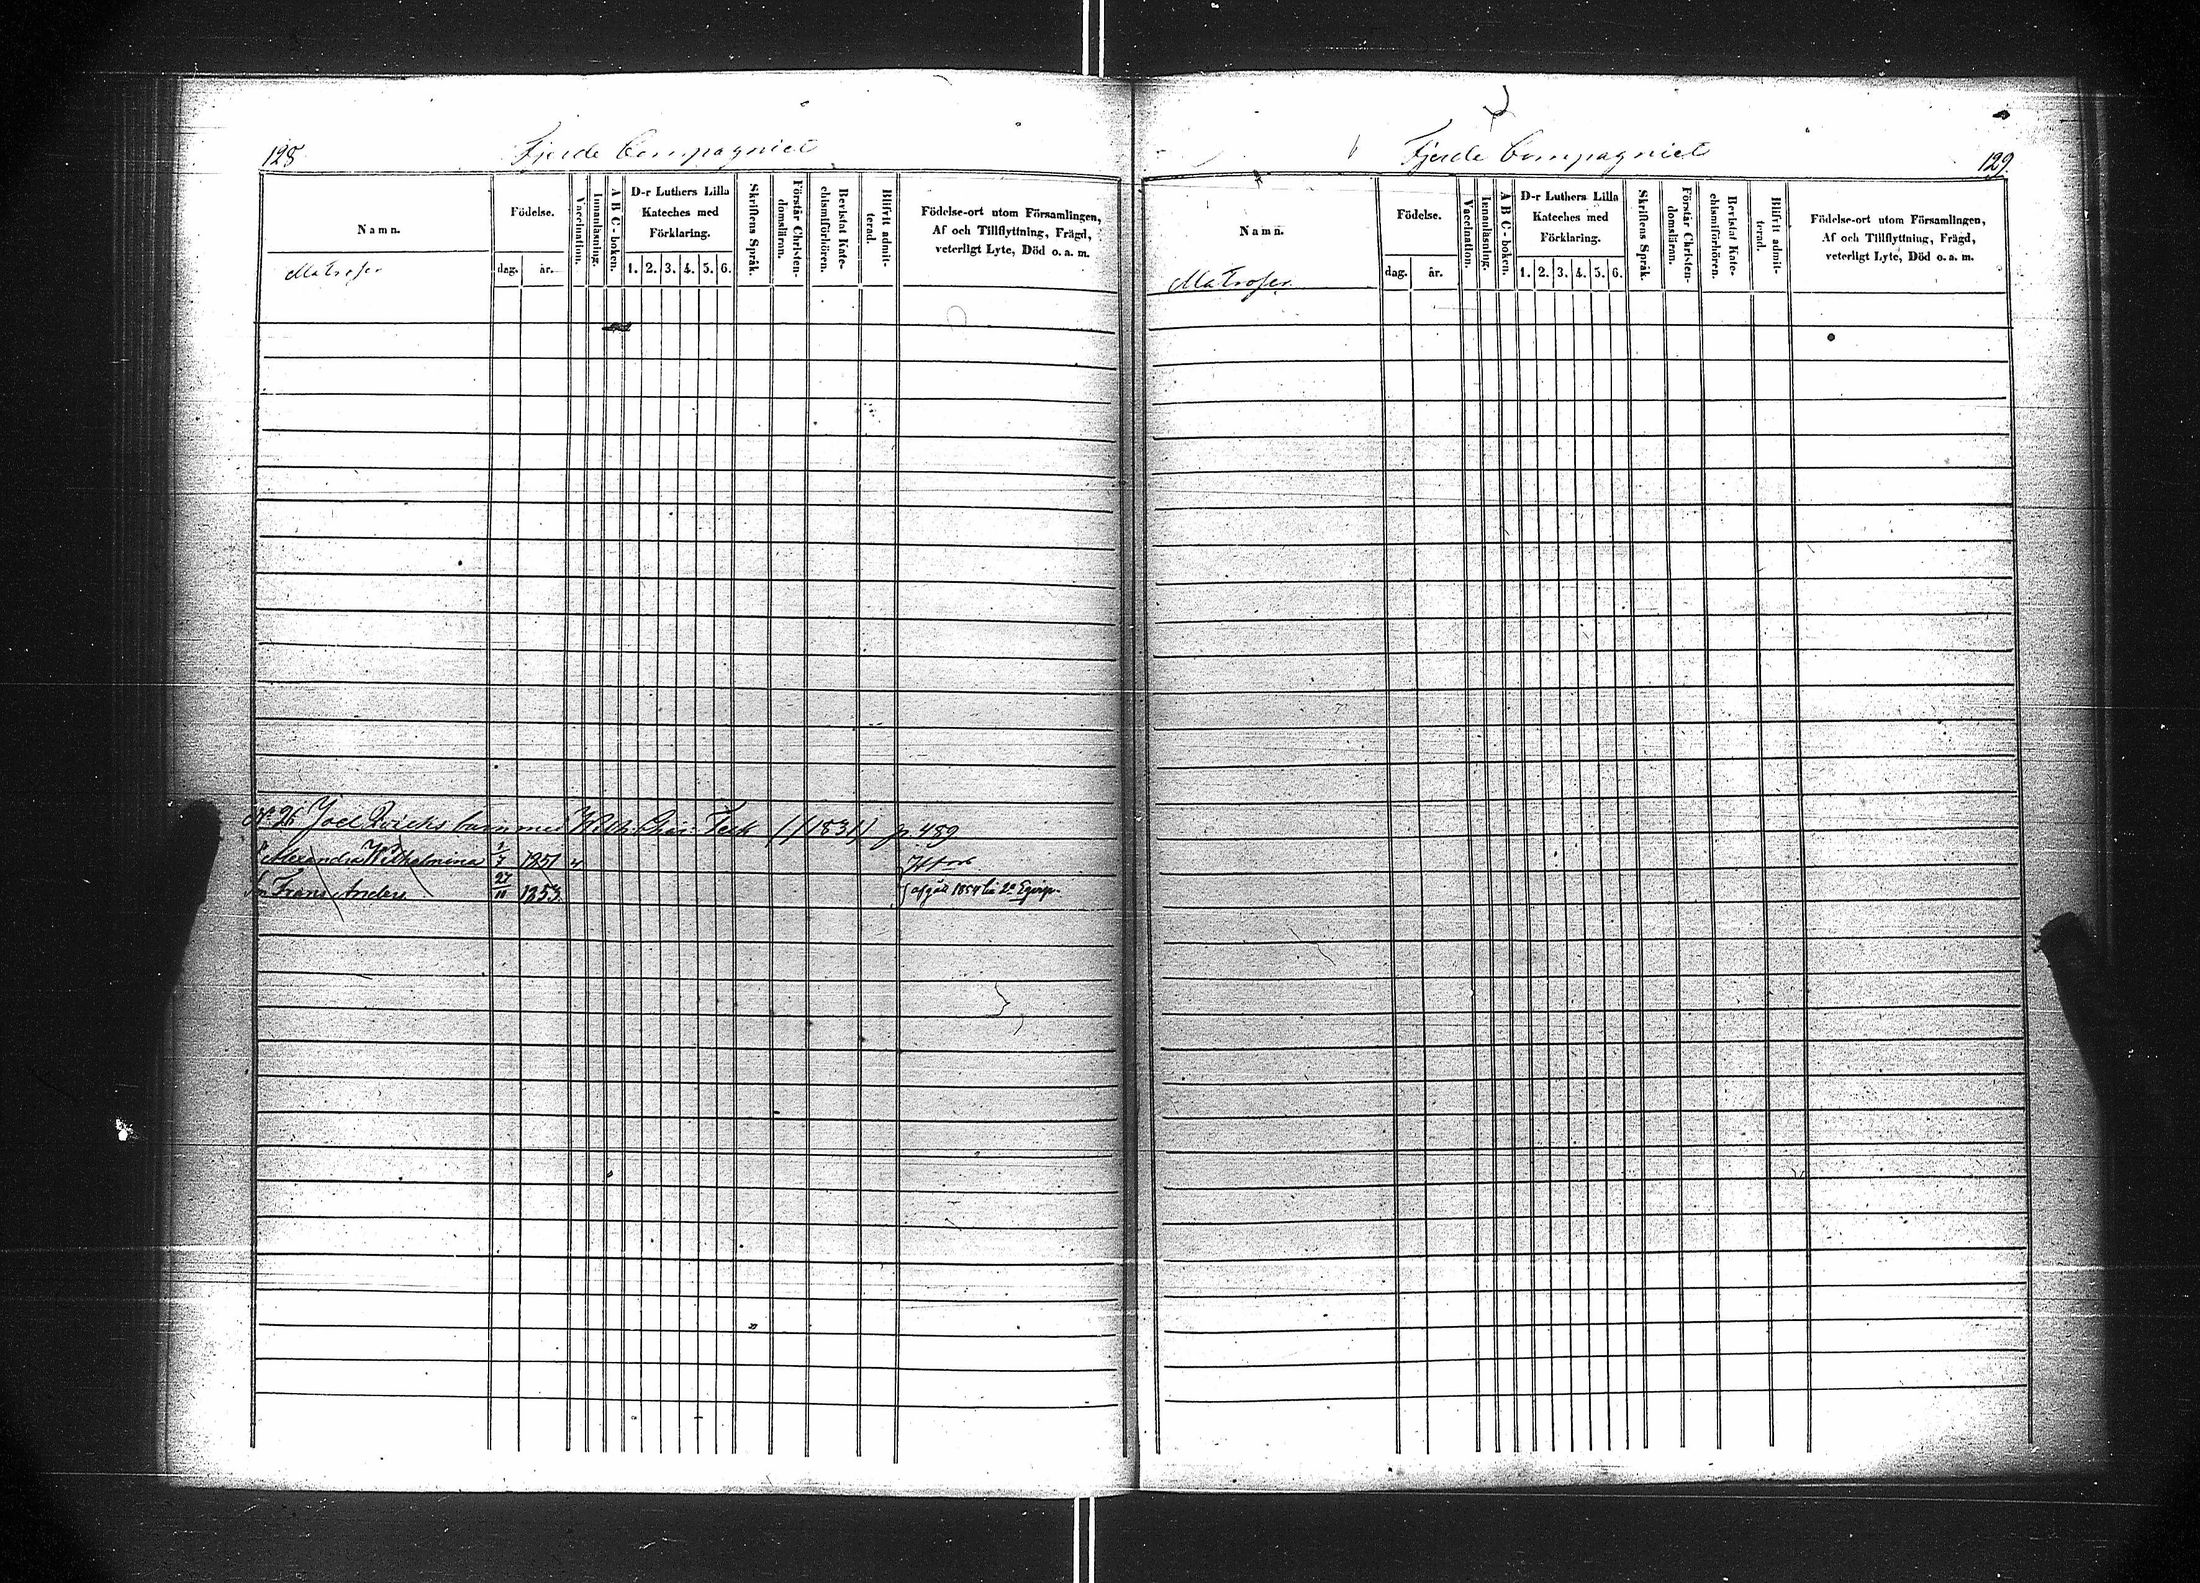 128 Fjerde Compagniet
Namn. Födelse. Vaccination. Innanläsning. A B C-boken. D-r Luthers Lilla Kateches med Förklaring. Skriftens Språk. Förstår Christendomsläran. Bevistat Katechismiförhören. Blifvit admitterad. Födelse-ort utom Församlingen, Af och Tillflyttning, Frägd, veterligt Lyte, Död o. a. m.
Matroser dag. år. 1. 2. 3. 4. 5. 6.
N:o 26 Joel barn med (1831) p. 489
Alexandra Wilhelmina 1851
Frans Anders 27/11 1853 afgått 1854
Fjerde Compagniet 129.
Namn. Födelse. Vaccination. Innanläsning. A B C-boken. D-r Luthers Lilla Kateches med Förklaring. Skriftens Språk. Förstår Christendomsläran. Bevistat Katechismiförhören. Blifvit admitterad. Födelse-ort utom Församlingen, Af och Tillflyttning, Frägd, veterligt Lyte, Död o. a. m.
Matroser dag. år. 1. 2. 3. 4. 5. 6.